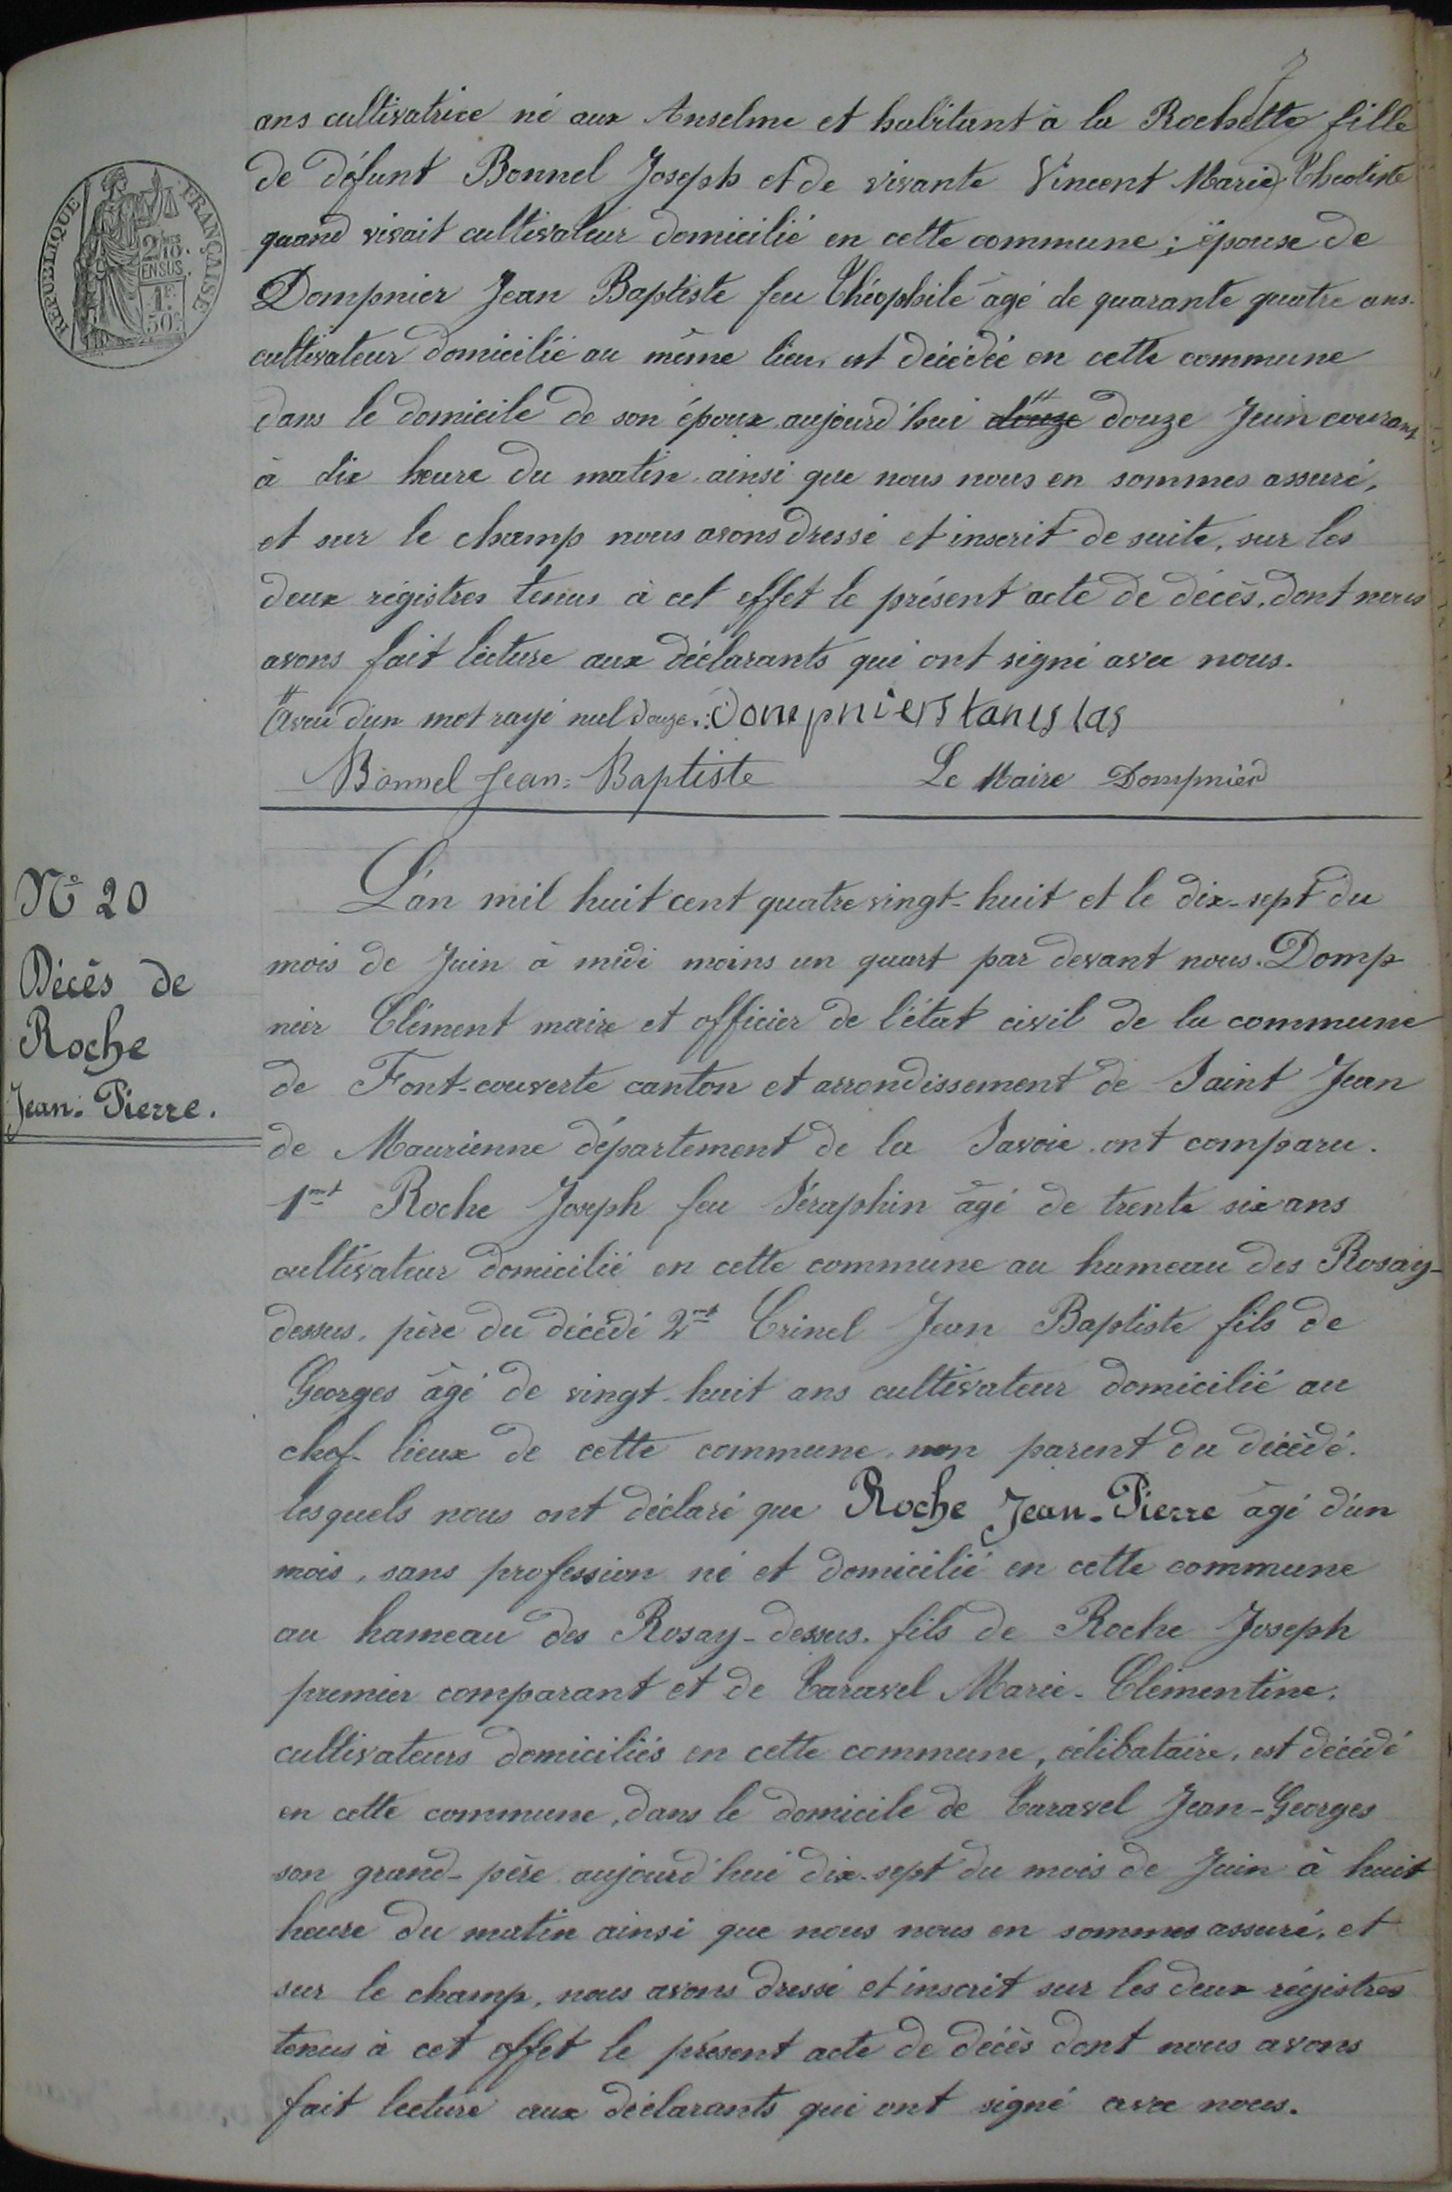 ans cultivatrice né aux Anselme et habitant à la Rochette fille
de défunt Bonnel Joseph et de vivante Vincent Marie Theotiste
quand vivait cultivateur domicilié en cette commune ; épouse de
Dompnier Jean Baptiste feu Théophile âgé de quarante quatre ans.
cultivateur domicilié au même lieu, est décédée en cette commune
dans le domicile de son époux aujourd'hui douze douze Juin courant
à dix heure du matin ainsi que nous nous en sommes assuré,
et sur le champ nous avons dressé et inscrit de suite, sur les
deux régistres tenus à cet effet le présent acte de décès, dont nous
avons fait lecture aux déclarants qui ont signé avec nous.
Aveu d'un mot rayé nul douze. Dompnier Stanislas
Bonnel Jean-Baptiste Le Maire Dompnier
RÉPUBLIQUE FRANÇAISE
2/10es
EN SUS.
1F
50C
N° 20
Décès de
Roche
Jean-Pierre.
L'an mil huit cent quatre vingt-huit et le dix-sept du
mois de Juin à midi moins un quart par devant nous. Domp
nier Clément maire et officier de l'état civil de la commune
de Font-couverte canton et arrondissement de Saint Jean
de Maurienne département de la Savoie ont comparu.
1mt Roche Joseph feu Séraphin âgé de trente six ans
cultivateur domicilié en cette commune au hameau des Rosay-
dessus, père du décédé 2mt Crinel Jean Baptiste fils de
Georges âgé de vingt-huit ans cultivateur domicilié au
chef-lieux de cette commune, non parent du décédé.
lesquels nous ont déclaré que Roche Jean-Pierre âgé d'un
mois, sans profession né et domicilié en cette commune
au hameau des Rosay-dessus. fils de Roche Joseph
premier comparant et de Taravel Marie-Clémentine.
cultivateurs domiciliés en cette commune, célibataire, est décédé
en cette commune, dans le domicile de Taravel Jean-Georges
son grand-père aujourd'hui dix-sept du mois de Juin à huit
heure du matin ainsi que nous nous en sommes assuré, et
sur le champ, nous avons dressé et inscrit sur les deux régistres
tenus à cet effet le présent acte de décès dont nous avons
fait lecture aux déclarants qui ont signé avec nous.